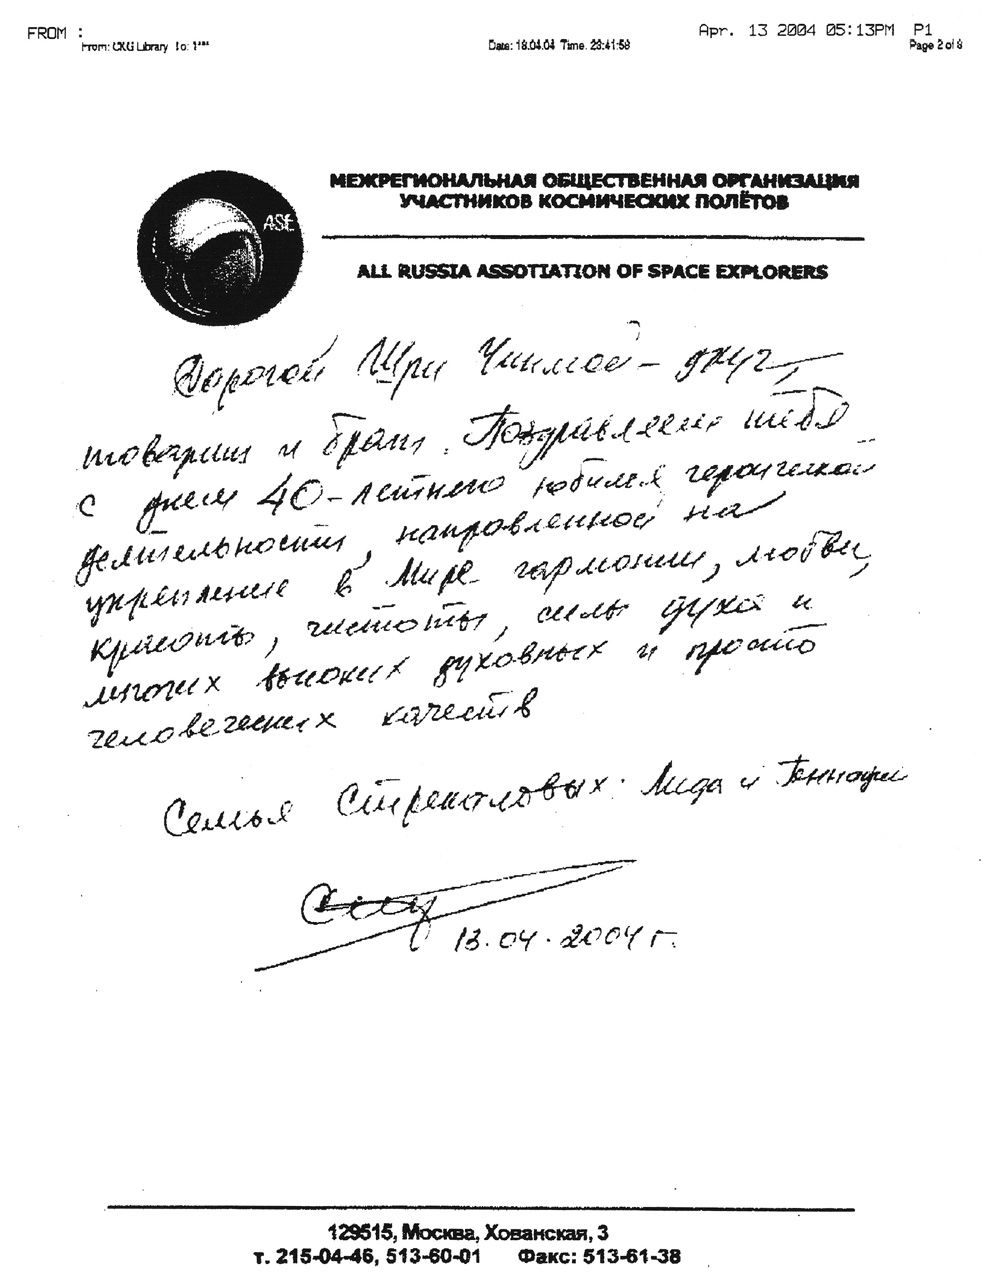 FROM :
Apr. 13 2004 05:13PM P1
From: CKG Library To: 1***
Date: 18.04.04 Time: 23:41:58
Page 2 of 8
ASE
МЕЖРЕГИОНАЛЬНАЯ ОБЩЕСТВЕННАЯ ОРГАНИЗАЦИЯ
УЧАСТНИКОВ КОСМИЧЕСКИХ ПОЛЁТОВ
ALL RUSSIA ASSOTIATION OF SPACE EXPLORERS
Дорогой Шри Чинмой – друг,
товарищ и брат. Поздравляем тебя
с днем 40-летнего юбилея героической
деятельности, направленной на
укрепление в Мире гармонии, любви,
красоты, чистоты, силы духа и
многих высоких духовных и просто
человеческих качеств
Семья Стрекаловых: Лида и Геннадий
13.04.2004 г.
129515, Москва, Хованская, 3
т. 215-04-46, 513-60-01 Факс: 513-61-38